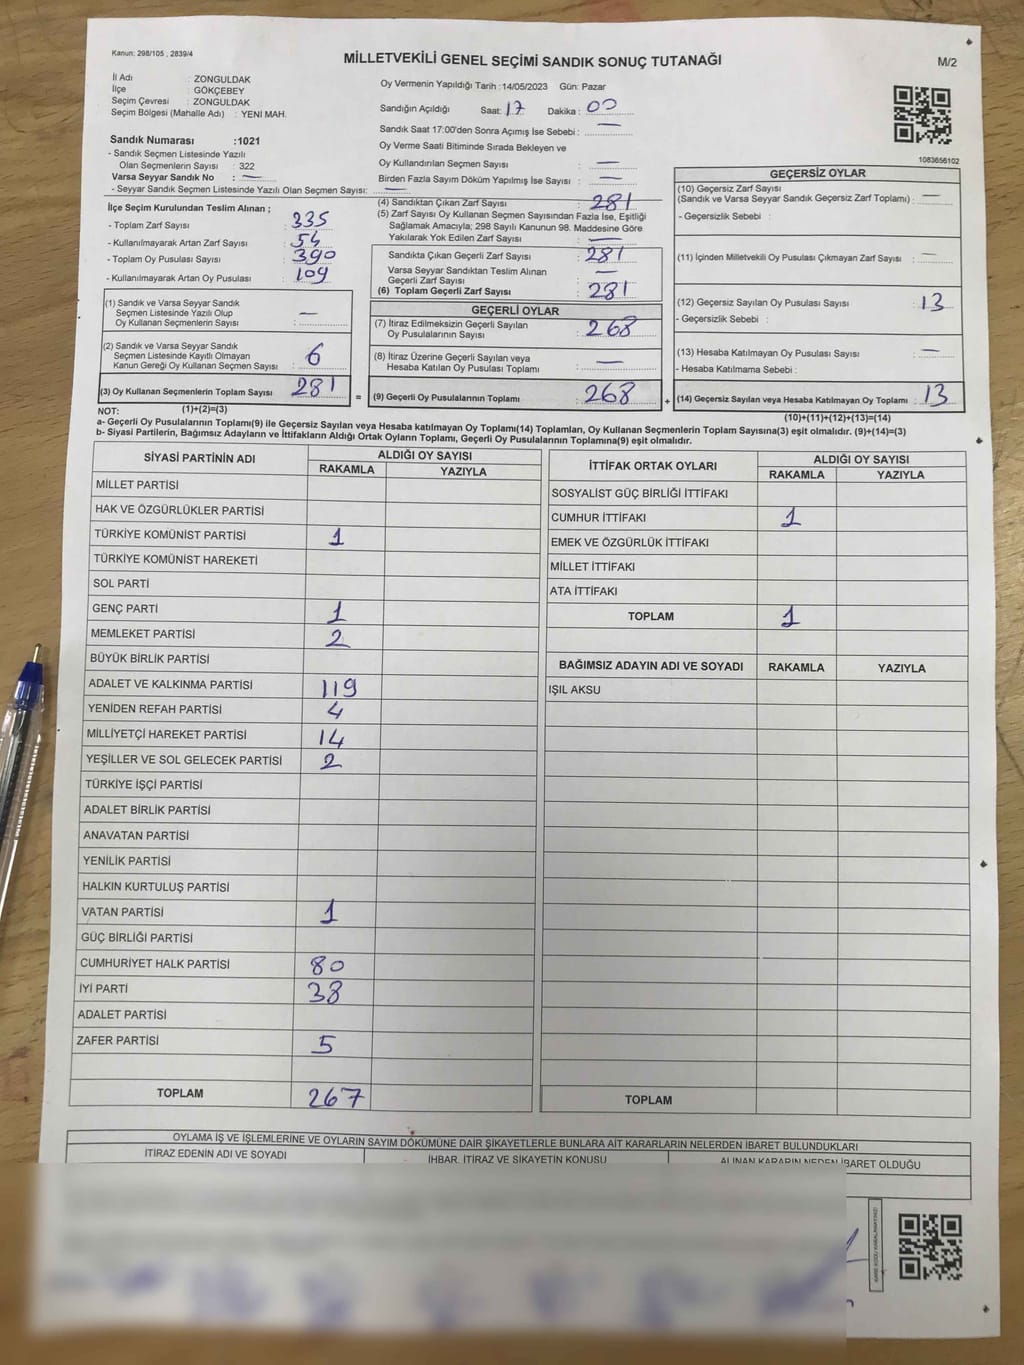 Kanun: 298/105 , 2839/4
MİLLETVEKİLİ GENEL SEÇİMİ SANDIK SONUÇ TUTANAĞI
M/2
İl Adı : ZONGULDAK
İlçe : GÖKÇEBEY
Seçim Çevresi : ZONGULDAK
Seçim Bölgesi (Mahalle Adı) : YENİ MAH.
Sandık Numarası :1021
- Sandık Seçmen Listesinde Yazılı
Olan Seçmenlerin Sayısı : 322
Varsa Seyyar Sandık No : —
- Seyyar Sandık Seçmen Listesinde Yazılı Olan Seçmen Sayısı: —
Oy Vermenin Yapıldığı Tarih :14/05/2023 Gün: Pazar
Sandığın Açıldığı Saat: 17 Dakika : 00
Sandık Saat 17:00'den Sonra Açımış İse Sebebi : —
Oy Verme Saati Bitiminde Sırada Bekleyen ve
Oy Kullandırılan Seçmen Sayısı : —
Birden Fazla Sayım Döküm Yapılmış İse Sayısı : —
1083656102
İlçe Seçim Kurulundan Teslim Alınan ;
- Toplam Zarf Sayısı : 335
- Kullanılmayarak Artan Zarf Sayısı : 54
- Toplam Oy Pusulası Sayısı : 390
- Kullanılmayarak Artan Oy Pusulası : 109
(1) Sandık ve Varsa Seyyar Sandık
Seçmen Listesinde Yazılı Olup
Oy Kullanan Seçmenlerin Sayısı : —
(2) Sandık ve Varsa Seyyar Sandık
Seçmen Listesinde Kayıtlı Olmayan
Kanun Gereği Oy Kullanan Seçmen Sayısı : 6
(3) Oy Kullanan Seçmenlerin Toplam Sayısı : 281
(4) Sandıktan Çıkan Zarf Sayısı : 281
(5) Zarf Sayısı Oy Kullanan Seçmen Sayısından Fazla İse, Eşitliği
Sağlamak Amacıyla; 298 Sayılı Kanunun 98. Maddesine Göre
Yakılarak Yok Edilen Zarf Sayısı : —
Sandıkta Çıkan Geçerli Zarf Sayısı : 281
Varsa Seyyar Sandıktan Teslim Alınan
Geçerli Zarf Sayısı : —
(6) Toplam Geçerli Zarf Sayısı : 281
GEÇERLİ OYLAR
(7) İtiraz Edilmeksizin Geçerli Sayılan
Oy Pusulalarının Sayısı : 268
(8) İtiraz Üzerine Geçerli Sayılan veya
Hesaba Katılan Oy Pusulası Toplamı : —
= (9) Geçerli Oy Pusulalarının Toplamı : 268
GEÇERSİZ OYLAR
(10) Geçersiz Zarf Sayısı
(Sandık ve Varsa Seyyar Sandık Geçersiz Zarf Toplamı) : —
- Geçersizlik Sebebi :
(11) İçinden Milletvekili Oy Pusulası Çıkmayan Zarf Sayısı : —
(12) Geçersiz Sayılan Oy Pusulası Sayısı : 13
- Geçersizlik Sebebi :
(13) Hesaba Katılmayan Oy Pusulası Sayısı : —
- Hesaba Katılmama Sebebi :
+ (14) Geçersiz Sayılan veya Hesaba Katılmayan Oy Toplamı : 13
NOT: (1)+(2)=(3)
(10)+(11)+(12)+(13)=(14)
a- Geçerli Oy Pusulalarının Toplamı(9) ile Geçersiz Sayılan veya Hesaba katılmayan Oy Toplamı(14) Toplamları, Oy Kullanan Seçmenlerin Toplam Sayısına(3) eşit olmalıdır. (9)+(14)=(3)
b- Siyasi Partilerin, Bağımsız Adayların ve İttifakların Aldığı Ortak Oyların Toplamı, Geçerli Oy Pusulalarının Toplamına(9) eşit olmalıdır.
SİYASİ PARTİNİN ADI ALDIĞI OY SAYISI
RAKAMLA YAZIYLA
MİLLET PARTİSİ
HAK VE ÖZGÜRLÜKLER PARTİSİ
TÜRKİYE KOMÜNİST PARTİSİ 1
TÜRKİYE KOMÜNİST HAREKETİ
SOL PARTİ
GENÇ PARTİ 1
MEMLEKET PARTİSİ 2
BÜYÜK BİRLİK PARTİSİ
ADALET VE KALKINMA PARTİSİ 119
YENİDEN REFAH PARTİSİ 4
MİLLİYETÇİ HAREKET PARTİSİ 14
YEŞİLLER VE SOL GELECEK PARTİSİ 2
TÜRKİYE İŞÇİ PARTİSİ
ADALET BİRLİK PARTİSİ
ANAVATAN PARTİSİ
YENİLİK PARTİSİ
HALKIN KURTULUŞ PARTİSİ
VATAN PARTİSİ 1
GÜÇ BİRLİĞİ PARTİSİ
CUMHURİYET HALK PARTİSİ 80
İYİ PARTİ 38
ADALET PARTİSİ
ZAFER PARTİSİ 5
TOPLAM 267
İTTİFAK ORTAK OYLARI ALDIĞI OY SAYISI
RAKAMLA YAZIYLA
SOSYALİST GÜÇ BİRLİĞİ İTTİFAKI
CUMHUR İTTİFAKI 1
EMEK VE ÖZGÜRLÜK İTTİFAKI
MİLLET İTTİFAKI
ATA İTTİFAKI
TOPLAM 1
BAĞIMSIZ ADAYIN ADI VE SOYADI RAKAMLA YAZIYLA
IŞIL AKSU
TOPLAM
OYLAMA İŞ VE İŞLEMLERİNE VE OYLARIN SAYIM DÖKÜMÜNE DAİR ŞİKAYETLERLE BUNLARA AİT KARARLARIN NELERDEN İBARET BULUNDUKLARI
İTİRAZ EDENİN ADI VE SOYADI İHBAR, İTİRAZ VE ŞİKAYETİN KONUSU ALINAN KARARIN NEDEN İBARET OLDUĞU
KARE KODU KARALAMAYINIZ!